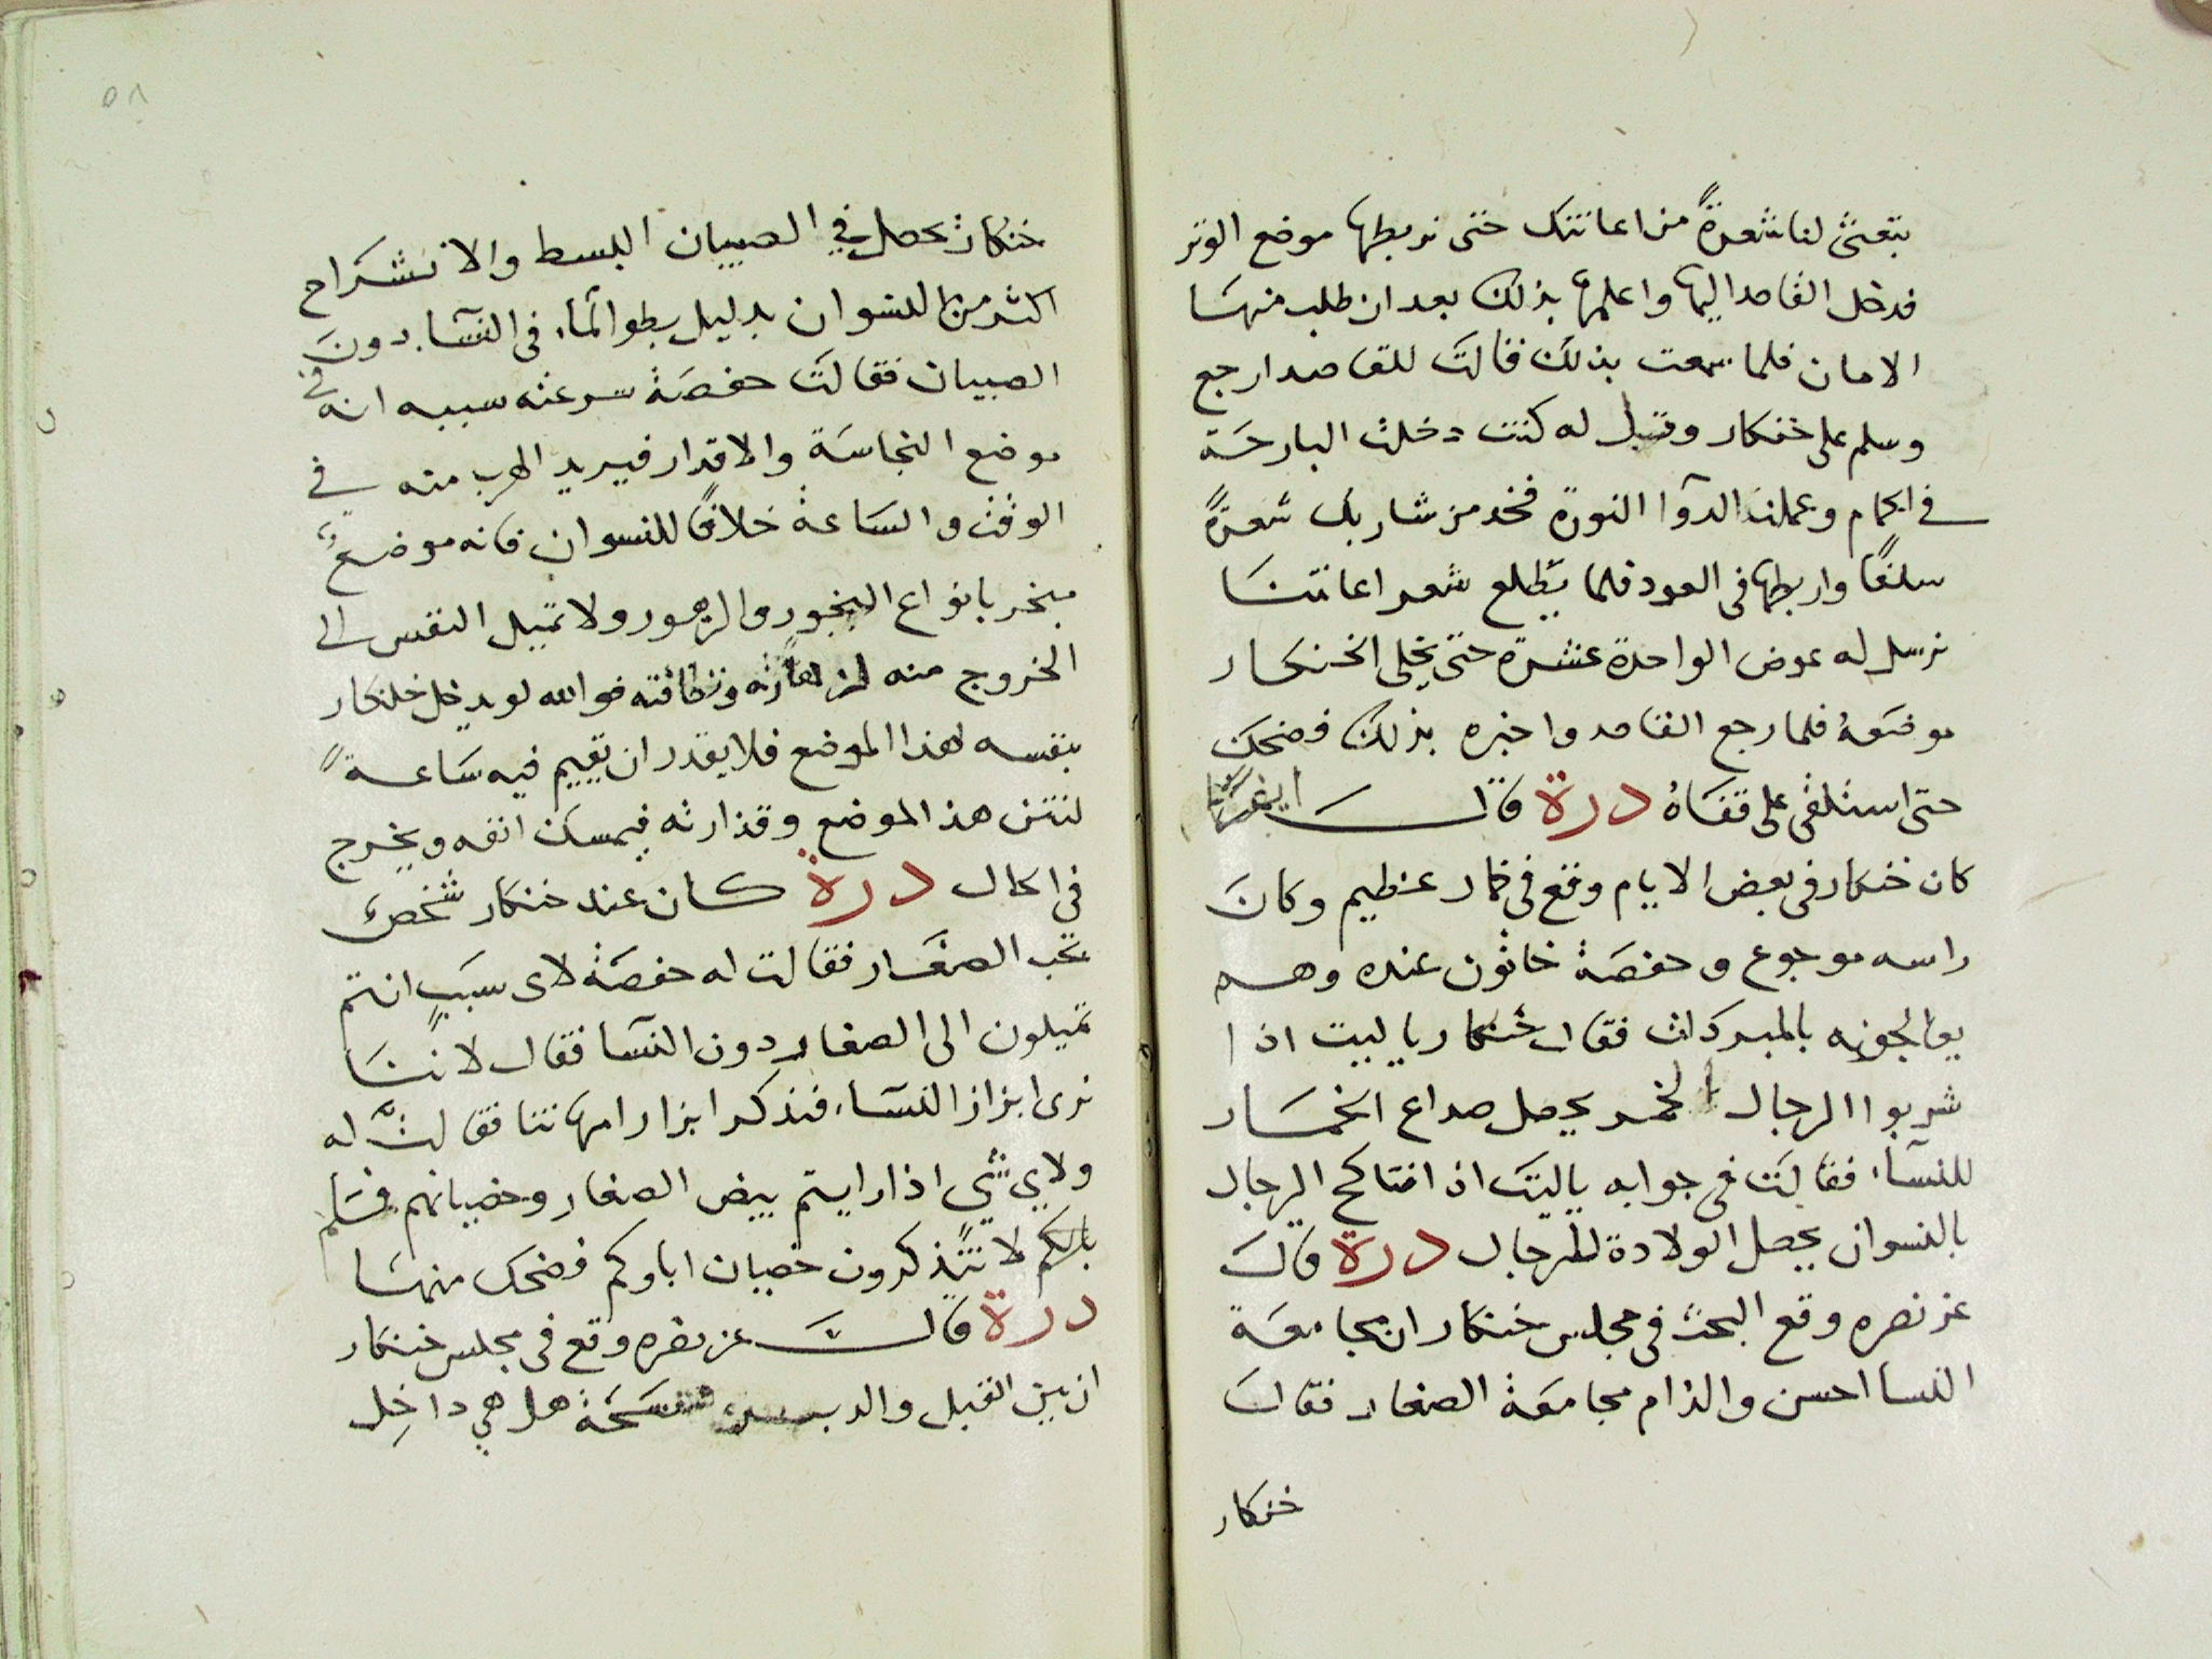 تبعثى لنا شعرةً من اعانتك حتى نربطها موضع الوتر
فدخل القاصد اليها واعلمها بذلك بعد ان طلب منها
الامان فلما سمعت بذلك فقالت للقاصد ارجع
وسلم على خنكار وقبل له كنت دخلت البارحة
في الحمام وعملت الدوا النورة فخد من شاربك شعرةً
سلفًا واربطها فى العود فلما يطلع شعر اعانتنا
نرسل له عوض الواحدة عشرة حتى يخلى الخنكار
موضعهُ فلما رجع القاصد واخبره بذلك فضحك
حتى استلقى على قفاهُ درة قالت
كان خنكار فى بعض الايام وقع فى خمار عظيم وكان
راسه موجوع وحفصة خاتون عنده وهم
يعالجونه بالمبردات فقال خنكار يا ليت اذا
شربوا الرجال الخمر يحصل صداع الخمار
للنساء فقالت فى جوابه ياليت اذ افتاكح الرجال
بالنسوان يحصل الولادة للرجال درة قالت
عز نصره وقع البحث فى مجلس خنكار ان مجامعة
النسا احسن والذ ام مجامعة الصغار فقالت
خنكار
٥٨
خنكار تحصل في الصبيان البسط والانشراح
اكثر من النسوان بدليل بطو الماء فى النساء دون
الصبيان فقالت حفصة سرعته سببه انه في
موضع النجاسة والاقدار فيريد الهرب منه في
الوقت والساعة خلافًا للنسوان فانه موضعٌ
مبخر بانواع البخور والزهور ولا تميل النفس الى
الخروج منه لزهارته ونظافته فوالله لو يدخل خنكار
بنفسه لهذا الموضع فلا يقدر ان تقييم فيه ساعةً
لنتن هذ الموضع وقذارته فيمسك انفه ويخرج
في الحال درة كان عند خنكار شخص
يحب الصغار فقالت له حفصة لاى سبب انتم
تميلون الى الصغار دون النسا فقال لاننا
نرى ابزاز النساء فنذكر ابزار امهاتنا فقالت له
ولاي شي اذا رايتم بيض الصغار وخصيانهم
لا تتذكرون خصيان اباوكم فضحك منها
درة قالت عز نصره وقع فى مجلس خنكار
ان بين القبل والدبر فسحة هل هي داخل